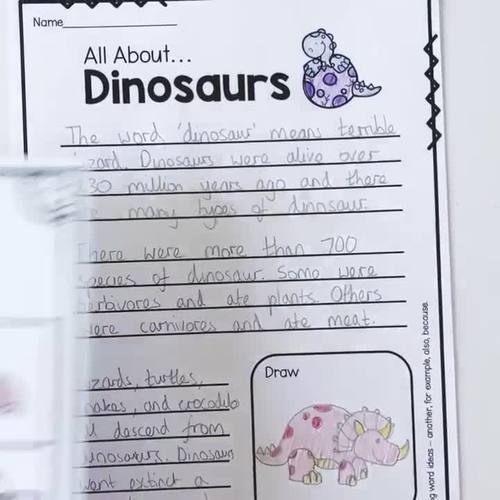 Name
All About...
Dinosaurs
The word 'dinosaur' means terrible
Dinosaurs were alive over
30 million years ago and there
many types of dinnsaur.
There were more than 700
species of dinosaur. Some were
herbivores and ate plants. Others
were carnivores and ate meat.
turtles,
and crocodile
descend from
Dinosaurs
went extinct a
Draw
word ideas – another, for example, also, because